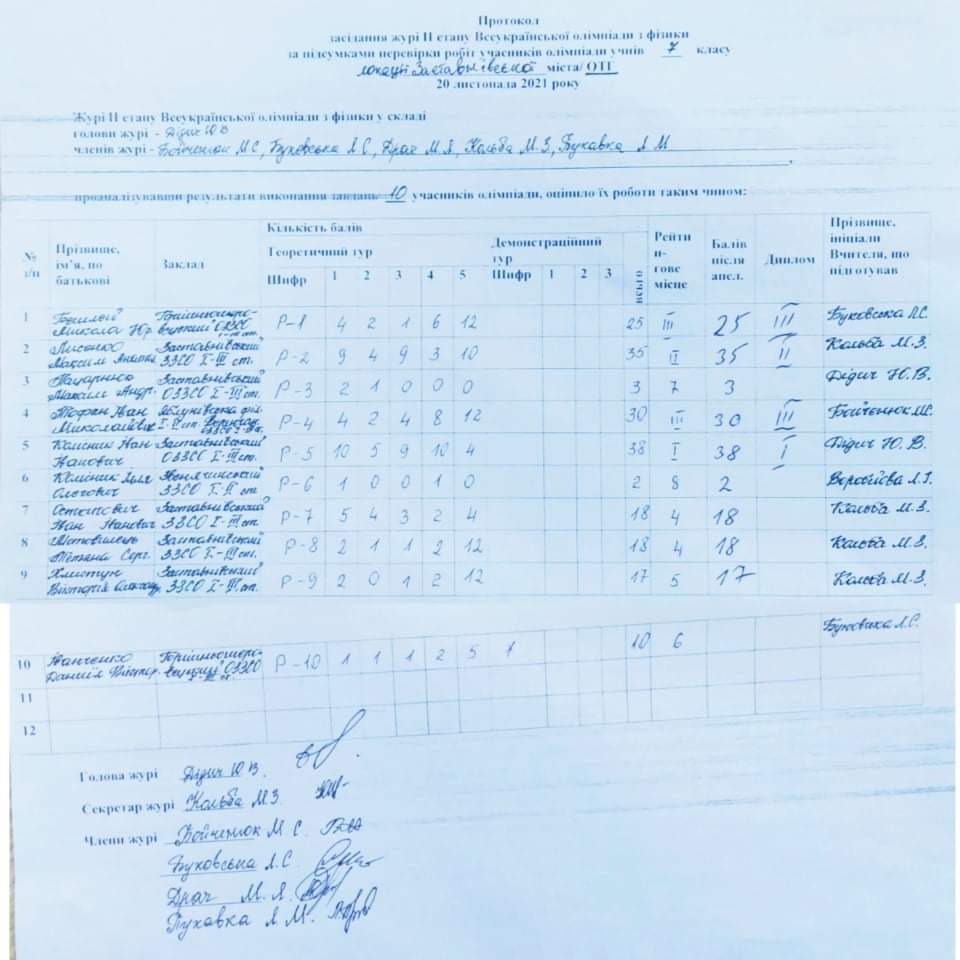 Протокол
засідання журі ІІ етапу Всеукраїнської олімпіади з фізики
за підсумками перевірки робіт учасників олімпіади учнів 7 класу
локації Заставнівської міста/ ОТГ
20 листопада 2021 року
Журі ІІ етапу Всеукраїнської олімпіади з фізики у складі
голови журі - Дідич Ю В
членів журі - Бойченюк М С, Буковська Л С, Драч М Я, Кольба М З, Букавка Л М
проаналізувавши результати виконання завдань 10 учасників олімпіади, оцінило їх роботи таким чином:
№ з/п Прізвище, ім'я, по батькові Заклад Кількість балів Рейтингове місце Балів після апел. Диплом Прізвище, ініціали Вчителя, що підготував
Теоретичний тур Демонстраційний тур всього
Шифр 1 2 3 4 5 Шифр 1 2 3
1 Микола Юр. ОЗЗСО Р-1 4 2 1 6 12 25 ІІІ 25 ІІІ Буковська Л.С.
2 Лисенко Максим Заставнівський ЗЗСО І-ІІІ ст. Р-2 9 4 9 3 10 35 ІІ 35 ІІ Кольба М.З.
3 Максим Андр. Заставнівський ОЗЗСО І-ІІІ ст. Р-3 2 1 0 0 0 3 7 3 Дідич Ю.В.
4 Тофан Іван Миколайович Яблунівська філ. Р-4 4 2 4 8 12 30 ІІІ 30 ІІІ Бойченюк М.С.
5 Іван Іванович Заставнівський ОЗЗСО І-ІІІ ст. Р-5 10 5 9 10 4 38 І 38 І Дідич Ю.В.
6 Олегович ЗЗСО І-ІІ ст. Р-6 1 0 0 1 0 2 8 2 Воробйова Л.І.
7 Остапович Іван Іванович Заставнівський ЗЗСО І-ІІІ ст. Р-7 5 4 3 2 4 18 4 18 Кольба М.З.
8 Тетяна Серг. Заставнівський ЗЗСО І-ІІІ ст. Р-8 2 1 1 2 12 18 4 18 Кольба М.З.
9 Хлистун Вікторія Заставнівський ЗЗСО І-ІІІ ст. Р-9 2 0 1 2 12 17 5 17 Кольба М.З.
10 Іванченко Даниїл Віктор. ОЗЗСО Р-10 1 1 1 2 5 7 10 6 Буковська Л.С.
11
12
Голова журі Дідич Ю В.
Секретар журі Кольба М З.
Члени журі Бойченюк М С
Буковська Л С
Драч М. Я.
Букавка Л М.